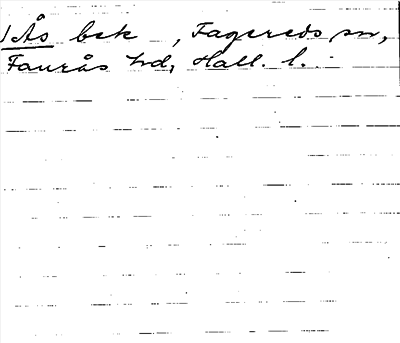 1 Ås bek , Fagereds sn,
Faurås hd, Hall. l.